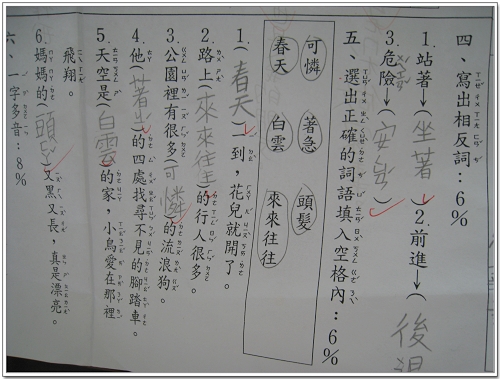 四、寫出相反詞：6%
1.站著→(坐著) 2.前進→(後
3.危險→(安全)
五、選出正確的詞語填入空格內：6%
可憐 著急 頭髮
春天 白雲 來來往往
1.(春天)一到，花兒就開了。
2.路上(來來往往)的行人很多。
3.公園裡有很多(可憐)的流浪狗。
4.他(著急)的四處找尋不見的腳踏車。
5.天空是(白雲)的家，小鳥愛在那裡
飛翔。
6.媽媽的(頭)又黑又長，真是漂亮。
六、一字多音：8%